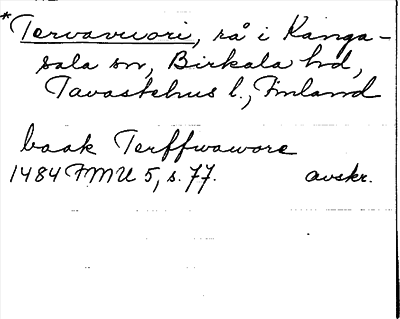 *Tervavuori, rå i Kanga-
sala sn, Birkala hd,
Tavastehus l., Finland
baak Terffwawore
1484 FMU 5, s. 77. avskr.